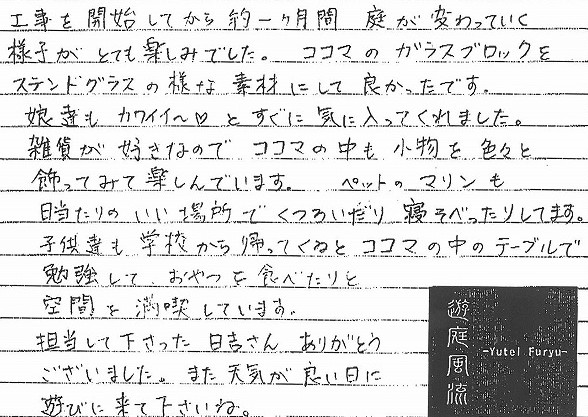 工事を開始してから約一ヶ月間 庭が変わっていく
様子がとても楽しみでした。 ココマのガラスブロックを
ステンドグラスの様な素材にして良かったです。
娘達も カワイイ〜♡ とすぐに気に入ってくれました。
雑貨が好きなので ココマの中も小物を色々と
飾ってみて楽しんでいます。 ペットのマリンも
日当たりのいい場所でくつろいだり寝そべったりしてます。
子供達も学校から帰ってくるとココマの中のテーブルで
勉強して、おやつを食べたりと
空間を満喫しています。
担当して下さった日吉さん ありがとう
ございました。また天気が良い日に
遊びに来て下さいね。
遊庭風流
-Yutei Furyu-